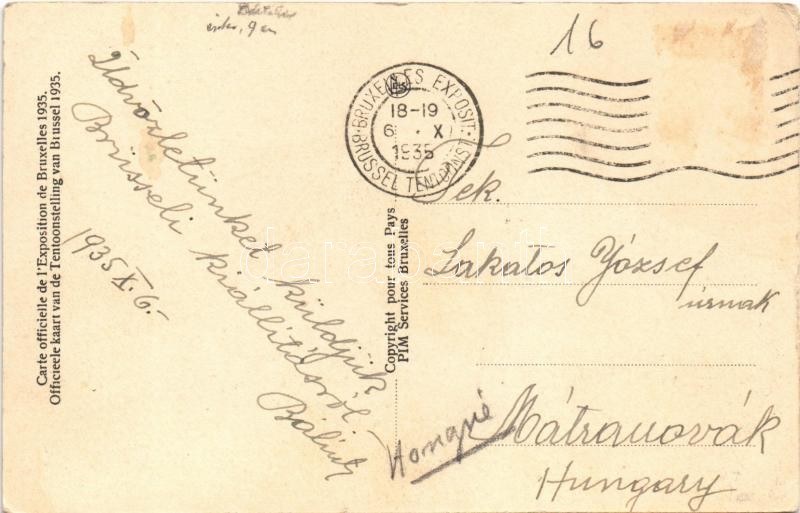 Carte officielle de l'Exposition de Bruxelles 1935.
Officieele kaart van de Tentoonstelling van Brussel 1935.
Üdvözletünket küldjük
Brüsseli kiállításról.
Bálint
1935 X. 6.
Copyright pour tous Pays
PIM Services Bruxelles
16
BRUXELLES EXPOSIT.
18-19
6 X
1935
BRUSSEL TENTOONST.
Tek.
Lakatos József
úrnak
Mátranovák
Hungary
Hongrié